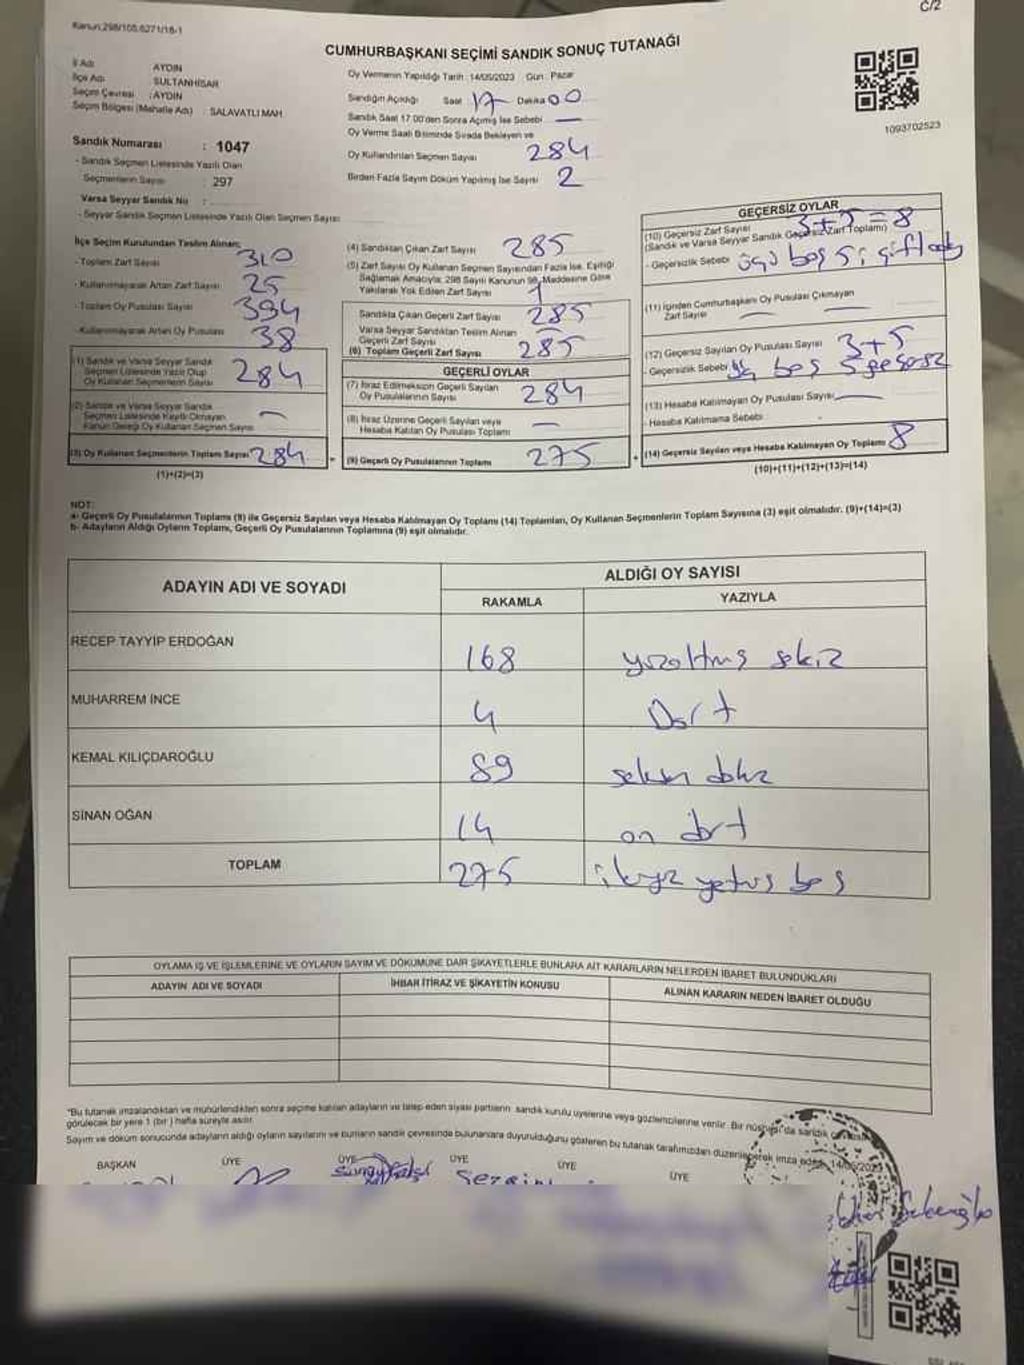 Kanun:298/105,6271/18-1
C/2
CUMHURBAŞKANI SEÇİMİ SANDIK SONUÇ TUTANAĞI
İl Adı AYDIN
İlçe Adı SULTANHİSAR
Seçim Çevresi : AYDIN
Seçim Bölgesi (Mahalle Adı) : SALAVATLI MAH.
Sandık Numarası : 1047
- Sandık Seçmen Listesinde Yazılı Olan
Seçmenlerin Sayısı : 297
Varsa Seyyar Sandık No :
- Seyyar Sandık Seçmen Listesinde Yazılı Olan Seçmen Sayısı:
Oy Vermenin Yapıldığı Tarih :14/05/2023 Gün : Pazar
Sandığın Açıldığı Saat 17 Dakika 00
Sandık Saat 17:00'den Sonra Açılmış İse Sebebi —
Oy Verme Saati Bitiminde Sırada Bekleyen ve
Oy Kullandırılan Seçmen Sayısı 284
Birden Fazla Sayım Döküm Yapılmış İse Sayısı 2
1093702523
İlçe Seçim Kurulundan Teslim Alınan;
- Toplam Zarf Sayısı 310
- Kullanılmayarak Artan Zarf Sayısı 25
- Toplam Oy Pusulası Sayısı 394
- Kullanılmayarak Artan Oy Pusulası 38
(1) Sandık ve Varsa Seyyar Sandık
Seçmen Listesinde Yazılı Olup
Oy Kullanan Seçmenlerin Sayısı 284
(2) Sandık ve Varsa Seyyar Sandık
Seçmen Listesinde Kayıtlı Olmayan
Kanun Gereği Oy Kullanan Seçmen Sayısı —
(3) Oy Kullanan Seçmenlerin Toplam Sayısı 284
(1)+(2)=(3)
(4) Sandıktan Çıkan Zarf Sayısı 285
(5) Zarf Sayısı Oy Kullanan Seçmen Sayısından Fazla İse, Eşitliği
Sağlamak Amacıyla, 298 Sayılı Kanunun 98. Maddesine Göre
Yakılarak Yok Edilen Zarf Sayısı 1
Sandıkta Çıkan Geçerli Zarf Sayısı 285
Varsa Seyyar Sandıktan Teslim Alınan
Geçerli Zarf Sayısı —
(6) Toplam Geçerli Zarf Sayısı 285
GEÇERLİ OYLAR
(7) İtiraz Edilmeksizin Geçerli Sayılan
Oy Pusulalarının Sayısı 284
(8) İtiraz Üzerine Geçerli Sayılan veya
Hesaba Katılan Oy Pusulası Toplamı —
(9) Geçerli Oy Pusulalarının Toplamı 275
GEÇERSİZ OYLAR
(10) Geçersiz Zarf Sayısı 3+5=8
(Sandık ve Varsa Seyyar Sandık Geçersiz Zarf Toplamı)
- Geçersizlik Sebebi: üçü boş 5i
(11) İçinden Cumhurbaşkanı Oy Pusulası Çıkmayan
Zarf Sayısı — —
(12) Geçersiz Sayılan Oy Pusulası Sayısı 3+5
- Geçersizlik Sebebi boş 5
(13) Hesaba Katılmayan Oy Pusulası Sayısı —
- Hesaba Katılmama Sebebi:
(14) Geçersiz Sayılan veya Hesaba Katılmayan Oy Toplamı 8
(10)+(11)+(12)+(13)=(14)
NOT:
a- Geçerli Oy Pusulalarının Toplamı (9) ile Geçersiz Sayılan veya Hesaba Katılmayan Oy Toplamı (14) Toplamları, Oy Kullanan Seçmenlerin Toplam Sayısına (3) eşit olmalıdır. (9)+(14)=(3)
b- Adayların Aldığı Oyların Toplamı, Geçerli Oy Pusulalarının Toplamına (9) eşit olmalıdır.
ADAYIN ADI VE SOYADI
ALDIĞI OY SAYISI
RAKAMLA YAZIYLA
RECEP TAYYİP ERDOĞAN 168 yüzaltmış sekiz
MUHARREM İNCE 4 Dört
KEMAL KILIÇDAROĞLU 89 seksen dokuz
SİNAN OĞAN 14 on dört
TOPLAM 275 ikiyüz yetmiş beş
OYLAMA İŞ VE İŞLEMLERİNE VE OYLARIN SAYIM VE DÖKÜMÜNE DAİR ŞİKAYETLERLE BUNLARA AİT KARARLARIN NELERDEN İBARET BULUNDUKLARI
ADAYIN ADI VE SOYADI İHBAR İTİRAZ VE ŞİKAYETİN KONUSU ALINAN KARARIN NEDEN İBARET OLDUĞU
*Bu tutanak imzalandıktan ve mühürlendikten sonra seçime katılan adayların ve talep eden siyasi partilerin sandık kurulu üyelerine veya gözlemcilerine verilir. Bir nüshası da sandık
görülecek bir yere 1 (bir) hafta süreyle asılır.
Sayım ve döküm sonucunda adayların aldığı oyların sayılarını ve bunların sandık çevresinde bulunanlara duyurulduğunu gösteren bu tutanak tarafımızdan düzenlenerek imza edildi. 14/05/2023
BAŞKAN ÜYE ÜYE ÜYE ÜYE ÜYE